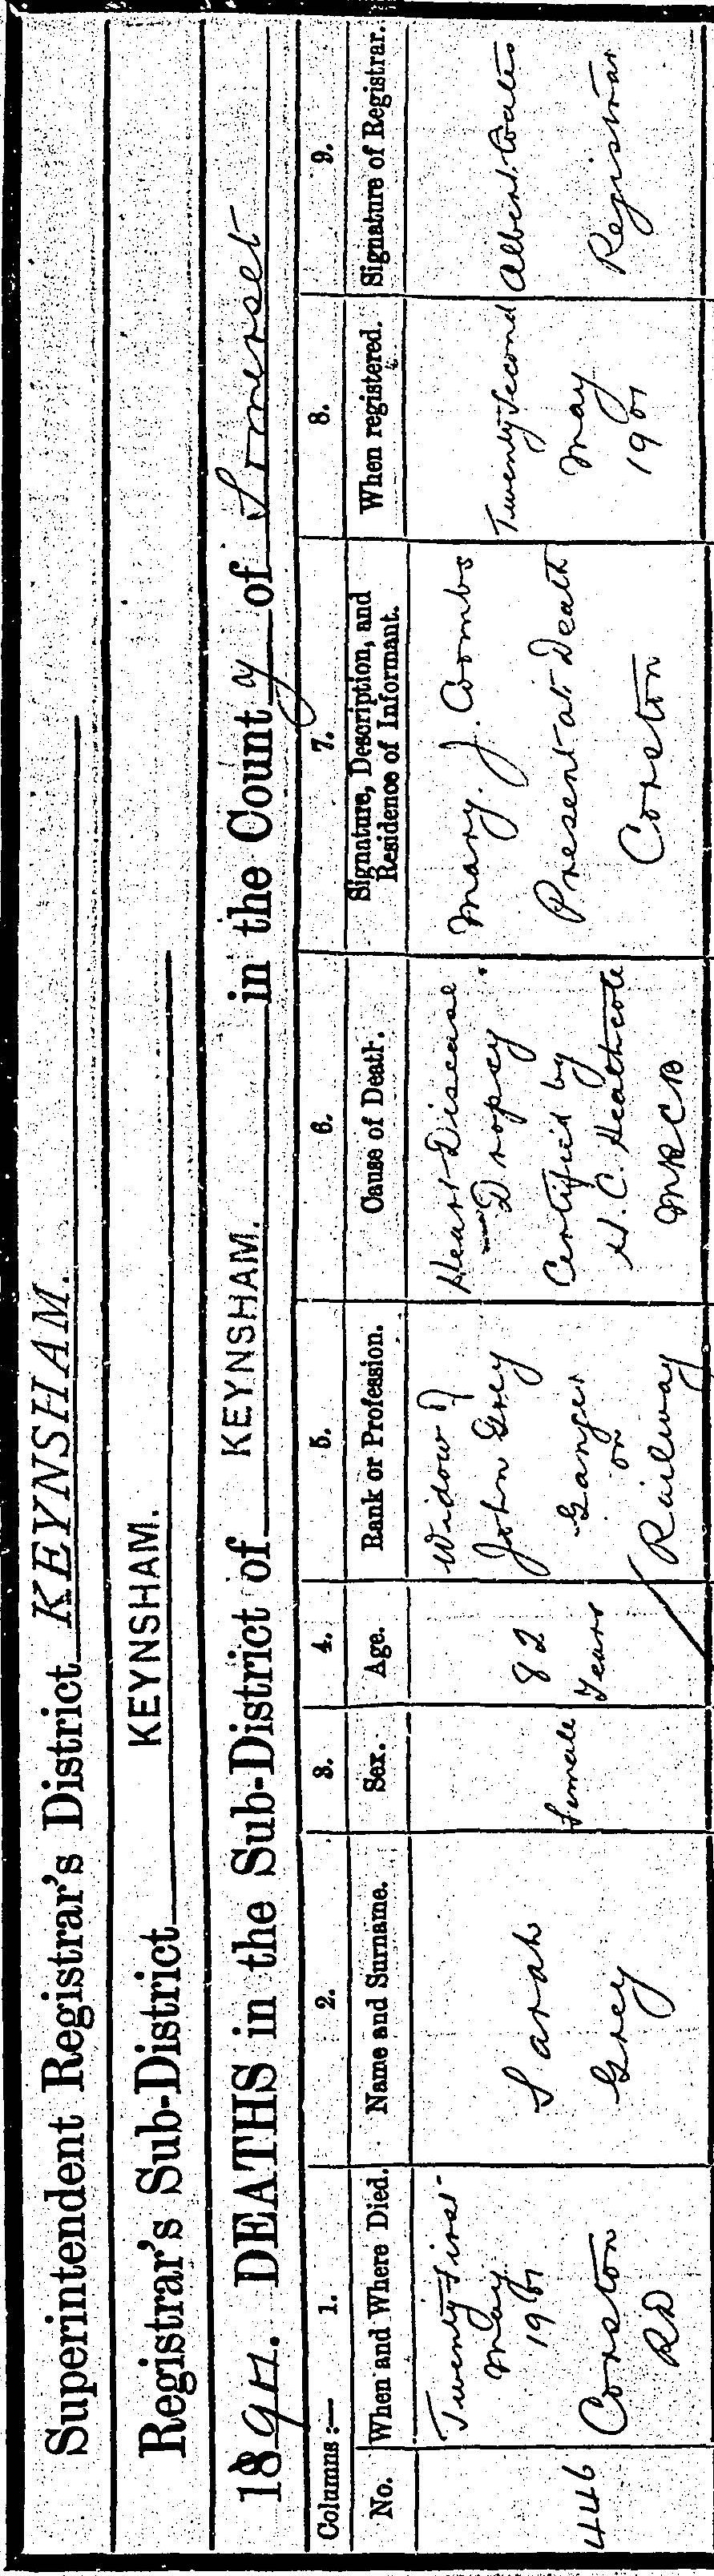 Superintendent Registrar's District KEYNSHAM.
Registrar's Sub-District KEYNSHAM.
DEATHS in the Sub-District of KEYNSHAM. in the County of Somerset
Columns :— 1. 2. 3. 4. 5. 6. 7. 8. 9.
No.
When and Where Died.
Name and Surname.
Sex.
Age.
Rank or Profession.
Cause of Death.
Signature, Description, and
Residence of Informant.
When registered.
Signature of Registrar.
446
Twenty First
May
1901
Corston
RD
Sarah
Grey
Female
82
Years
Widow of
John Grey
Ganger
on
Railway
Heart Disease
Dropsy
Certified by
H. C. Heathcote
MRCS
Mary. J. Coombs
Present at Death
Corston
Twenty Second
May
1901
Albert Coates
Registrar